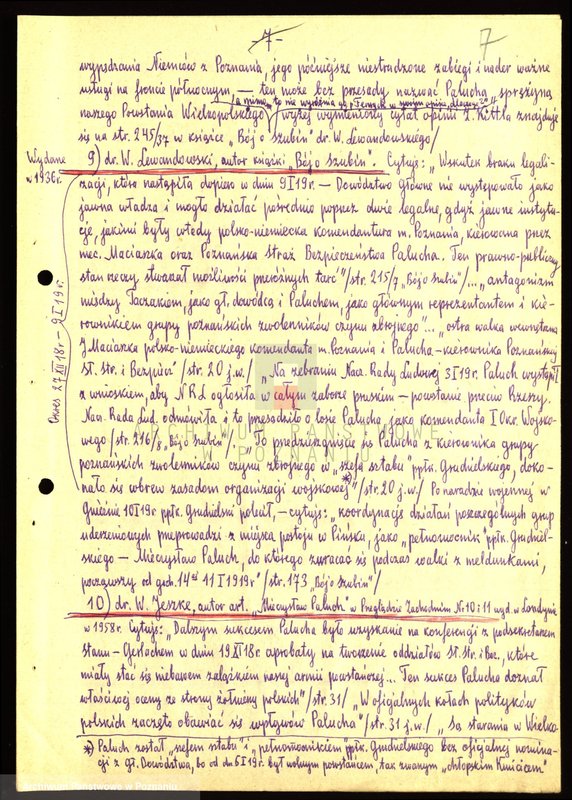 -7-
7
wypędzania Niemców z Poznania, jego późniejsze niestrudzone zabiegi i nader ważne
usługi na froncie północnym — ten może bez przesady nazwać Palucha sprężyną
naszego Powstania Wielkopolskiego / wyżej wymieniony cytat opinii Z. Kittla znajduje
się na str. 245/37 w książce „Bój o Szubin" dr. W. Lewandowskiego/
Wydane
w 1936r.
9) dr. W. Lewandowski, autor książki „Bój o Szubin". Cytuję: „Wskutek braku legali-
zacji, która nastąpiła dopiero w dniu 9 I 19r – Dowództwo Główne nie występowało jako
jawna władza i mogło działać pośrednio poprzez dwie legalne, gdyż jawne instytu-
cje, jakimi były wtedy polsko-niemiecka komendantura m. Poznania, kierowana przez
mec. Maciaszka oraz Poznańska Straż Bezpieczeństwa Palucha. Ten prawno-publiczny
stan rzeczy stwarzał możliwości przeróżnych tarć"/str. 215/7 „Bój o Szubin"/... „antagonizm
między Taczakiem, jako gł. dowódcą i Paluchem, jako głównym reprezentantem i kie-
rownikiem grupy poznańskich zwolenników czynu zbrojnego"... „ostra walka wewnętrzna
J. Maciaszka polsko-niemieckiego komendanta m. Poznania i Palucha – kierownika Poznańskiej
St. Str. i Bezpiecz" /str. 20 j.w./ „Na zebraniu Nacz. Rady Ludowej 3 I 19r. Paluch wystąpił
z wnioskiem, aby N R L ogłosiła w całym zaborze pruskim – powstanie przeciw Rzeszy.
Nacz. Rada Lud. odmówiła i to przesądziło o losie Palucha, jako komendanta I Okr. Wojsko-
wego /str. 216/3 „Bój o Szubin"/. „To przedzierzgnięcie się Palucha z kierownika grupy
poznańskich zwolenników czynu zbrojnego w „szefa sztabu" ppłk. Grudzielskiego, doko-
nało się wbrew zasadom organizacji wojskowej"*)/str. 20 j.w./ Po naradzie wojennej w
Gnieźnie 10 I 19r ppłk. Grudzielski polecił, – cytuję: „koordynację działań poszczególnych grup
uderzeniowych przeprowadzi z miejsca postoju w Pińsku, jako „pełnomocnik" ppłk. Grudziel-
skiego – Mieczysław Paluch, do którego zwracać się podczas walki z meldunkami,
począwszy od godz. 14tej 11 I 1919r" /str. 173 „Bój o Szubin"/
Okres 27 XII 18r – 9 I 19r.
10) dr. W. Jeszke, autor art. „Mieczysław Paluch" w Przeglądzie Zachodnim Nr. 10 i 11 wyd. w Londynie
w 1958r. Cytuję: „Dalszym sukcesem Palucha było uzyskanie na konferencji z podsekretarzem
stanu – Gerlachem w dniu 19 XI 18r aprobaty na tworzenie oddziałów St. Str. i Bez., które
miały stać się niebawem zalążkiem naszej armii powstańczej... Ten sukces Palucha doznał
właściwej oceny ze strony żołnierzy polskich"/str. 31/ „W oficjalnych kołach polityków
polskich zaczęto obawiać się wpływów Palucha"/str. 31 j.w./ „Są starania w Wielko-
*) Paluch został „szefem sztabu" i „pełnomocnikiem" ppłk. Grudzielskiego bez oficjalnej nomina-
cji z gł. Dowództwa, bo od dn. 6 I 19r. był wolnym powstańcem, tak zwanym „chłopskim Kmicicem"